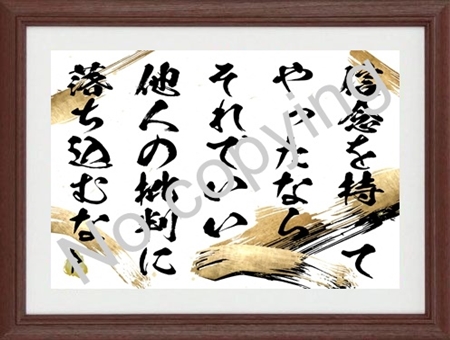 信念を持って
やったなら
それでいい
他人の批判に
落ち込むな
No copying